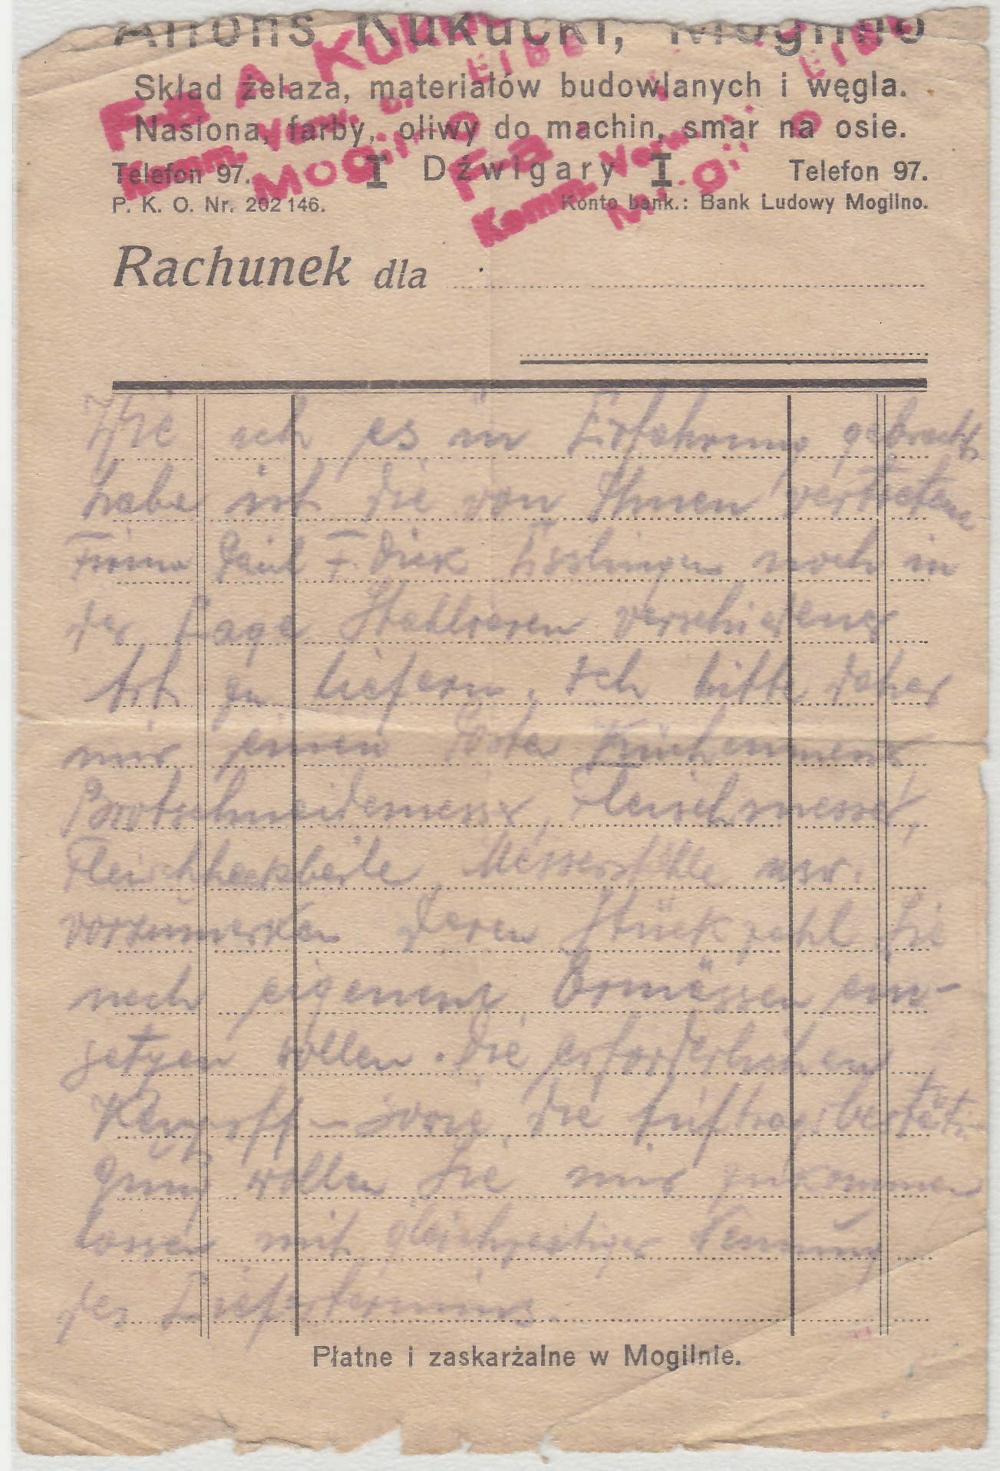 Alfons Kukucki, Mogilno
Skład żelaza, materiałów budowlanych i węgla.
Nasiona, farby, oliwy do machin, smar na osie.
Telefon 97. I Dźwigary I Telefon 97.
P. K. O. Nr. 202146. Konto bank.: Bank Ludowy Mogilno.
Fa A.
Komm. Verw.
Mogilno
Fa
Komm. Verw.
Rachunek dla
Wie ich es in Erfahrung gebracht
habe ist die von Ihnen vertretene
Firma Paul F. Dick Esslingen noch in
der Lage Stahlwaren verschiedener
Art zu liefern. Ich bitte daher
mir einen Posten Küchenmesser
Brotschneidemesser, Fleischmesser,
Fleischhackbeile, Messerstähle usw.
vorzumerken deren Stückzahl Sie
nach eigenem Ermessen ein-
setzen wollen. Die erforderlichen
sowie die Auftragsbestäti-
gung wollen Sie mir zukommen
lassen mit gleichzeitiger Nennung
des Liefertermins.
Płatne i zaskarżalne w Mogilnie.